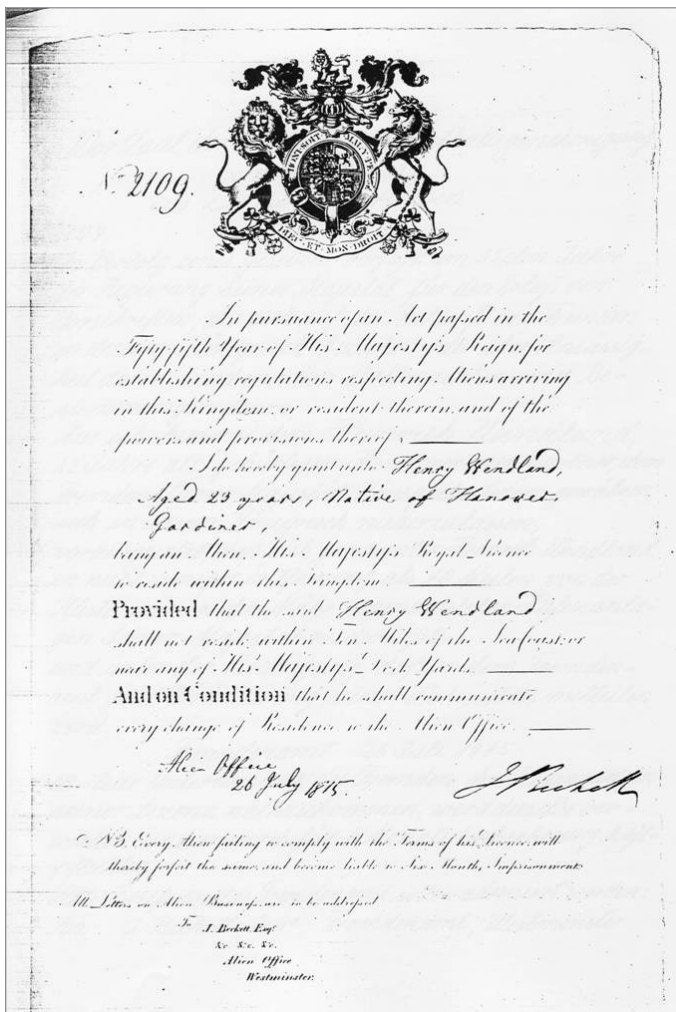 HONI SOIT QUI MAL Y PENSE
DIEU ET MON DROIT
No 2109.
In pursuance of an Act passed in the
Fifty-fifth Year of His Majesty's Reign, for
establishing regulations respecting Aliens arriving
in this Kingdom, or resident therein, and of the
powers and provisions thereof
I do hereby grant unto Henry Wendland,
Aged 23 years, Native of Hanover,
Gardiner,
being an Alien, His Majesty's Royal Licence
to reside within this Kingdom
Provided that the said Henry Wendland
shall not reside within Ten Miles of the Sea Coast or
near any of His Majesty's Dock Yard.
And on Condition that he shall communicate
every change of Residence to the Alien Office.
Alien Office
26 July 1815.
J Beckett
NB. Every Alien failing to comply with the Terms of his Licence, will
thereby forfeit the same, and become liable to Six Months Imprisonment.
All Letters on Alien Business, are to be addressed
To J. Beckett Esqr.
&c. &c. &c.
Alien Office
Westminster.